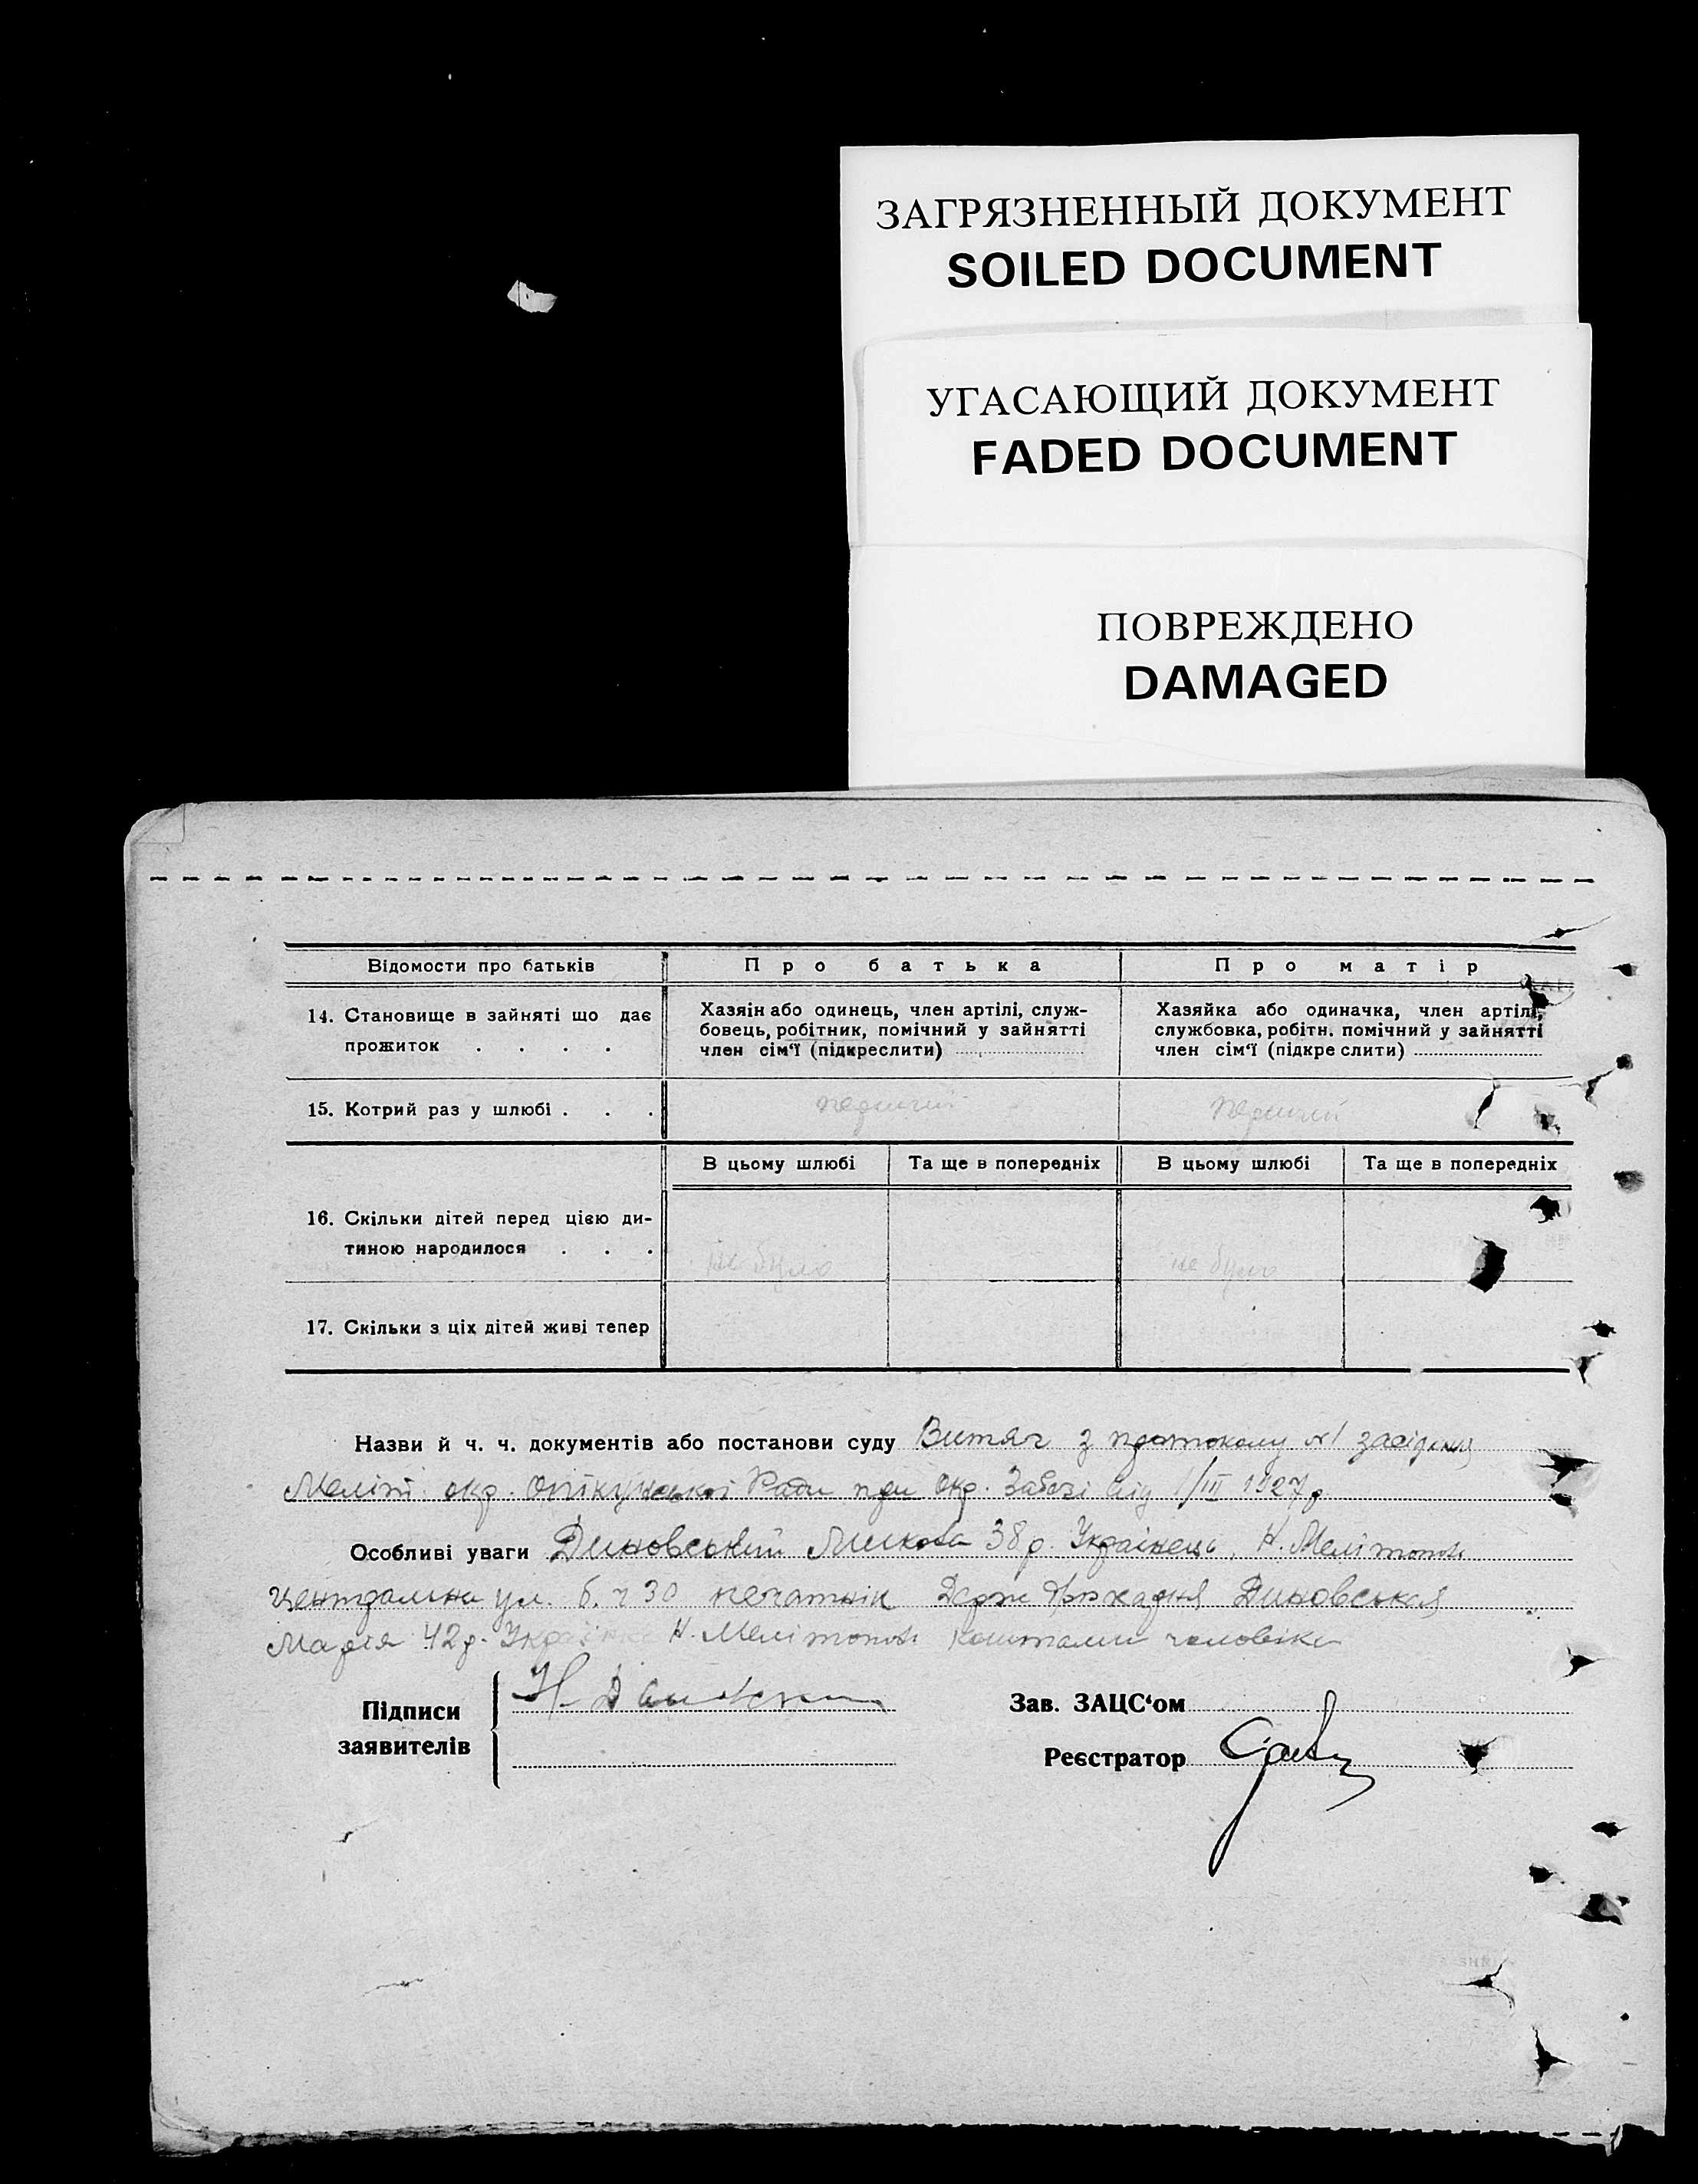 ЗАГРЯЗНЕННЫЙ ДОКУМЕНТ
SOILED DOCUMENT
УГАСАЮЩИЙ ДОКУМЕНТ
FADED DOCUMENT
ПОВРЕЖДЕНО
DAMAGED
Відомости про батьків
Про батька
Про матір
14. Становище в зайняті що дає
прожиток . . . .
Хазяін або одинець, член артілі, служ-
бовець, робітник, помічний у зайнятті
член сім‘ї (підкреслити)
Хазяйка або одиначка, член артілі,
службовка, робітн. помічний у зайнятті
член сім‘ї (підкреслити)
15. Котрий раз у шлюбі . . .
первичий
первичий
В цьому шлюбі
Та ще в попередніх
В цьому шлюбі
Та ще в попередніх
16. Скільки дітей перед цією ди-
тиною народилося . . .
не було
не було
17. Скільки з ціх дітей живі тепер
Назви й ч. ч. документів або постанови суду Витяг з протокому №1 засідання
Меліт. окр. Опікунської Ради при Окр. від 1/III 1927р
Особливі уваги Диновський Микола 38р. Українець, М. Мелітополь
Центральна ул. б. ч 30 печатнік Держ Диновськая
Марія 42р. М. Мелітополь коштами чоловіка
Підписи
заявителів
Н.
Зав. ЗАЦС‘ом
Реєстратор